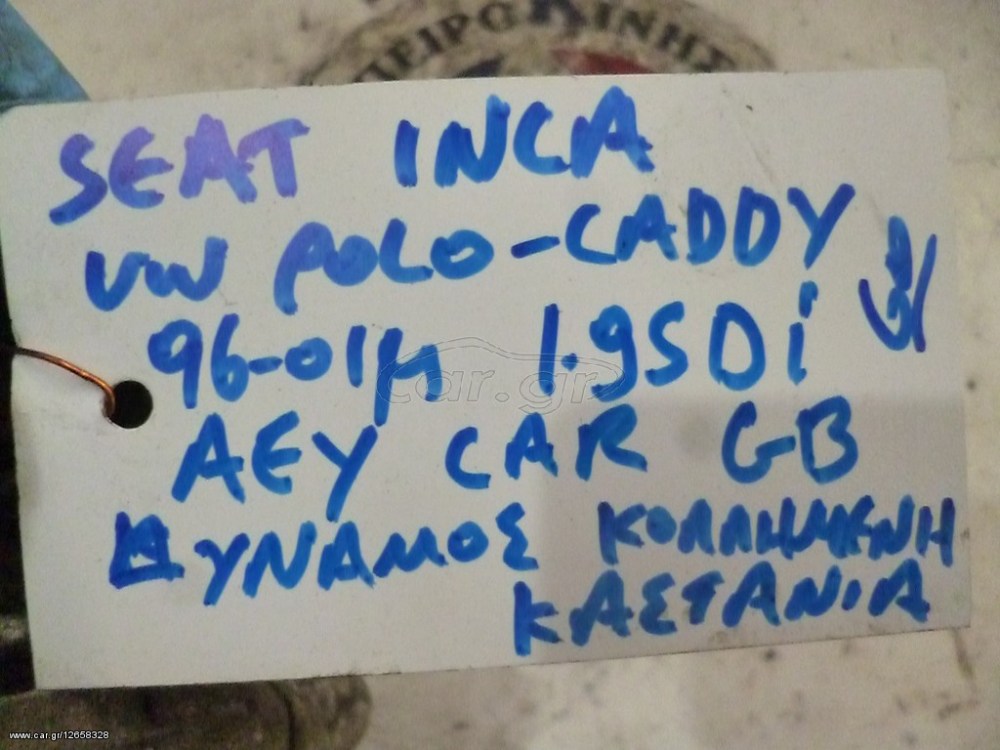 ΠΕΙΡΩΤΙΝΗΣ
SEAT INCA
VW POLO-CADDY
96-01μ 1.9SDi
AEY CAR GB
ΔΥΝΑΜΟΣ ΚΟΛΛΗΜΕΝΗ
ΚΑΣΤΑΝΙΑ
car.gr
www.car.gr/12658328